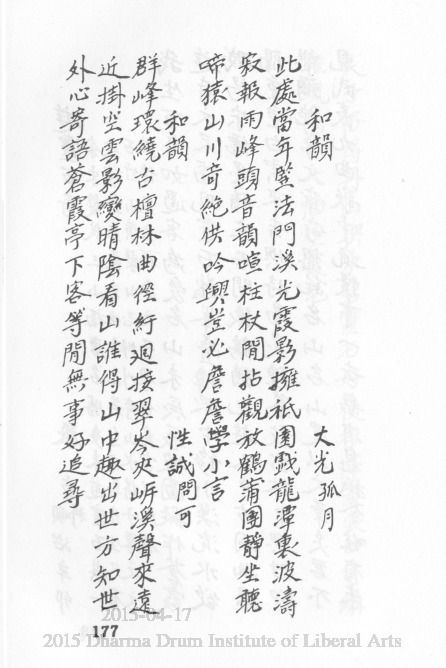 和韻　大光孤月
此處當年豎法門溪光霞影擁祇園戲龍潭裏波濤
寂報雨峰頭音韻喧柱杖閒拈觀放鶴蒲團靜坐聽
啼猿山川奇絶供吟興豈必詹詹學小言
和韻　性誠問可
群峰環繞古檀林曲徑紆迴接翠岑夾岍溪聲來遠
近掛空雲影變晴陰看山誰得山中趣出世方知世
外心寄語蒼霞亭下客等閒無事好追尋
2015-04-17
177
2015 Dharma Drum Institute of Liberal Arts